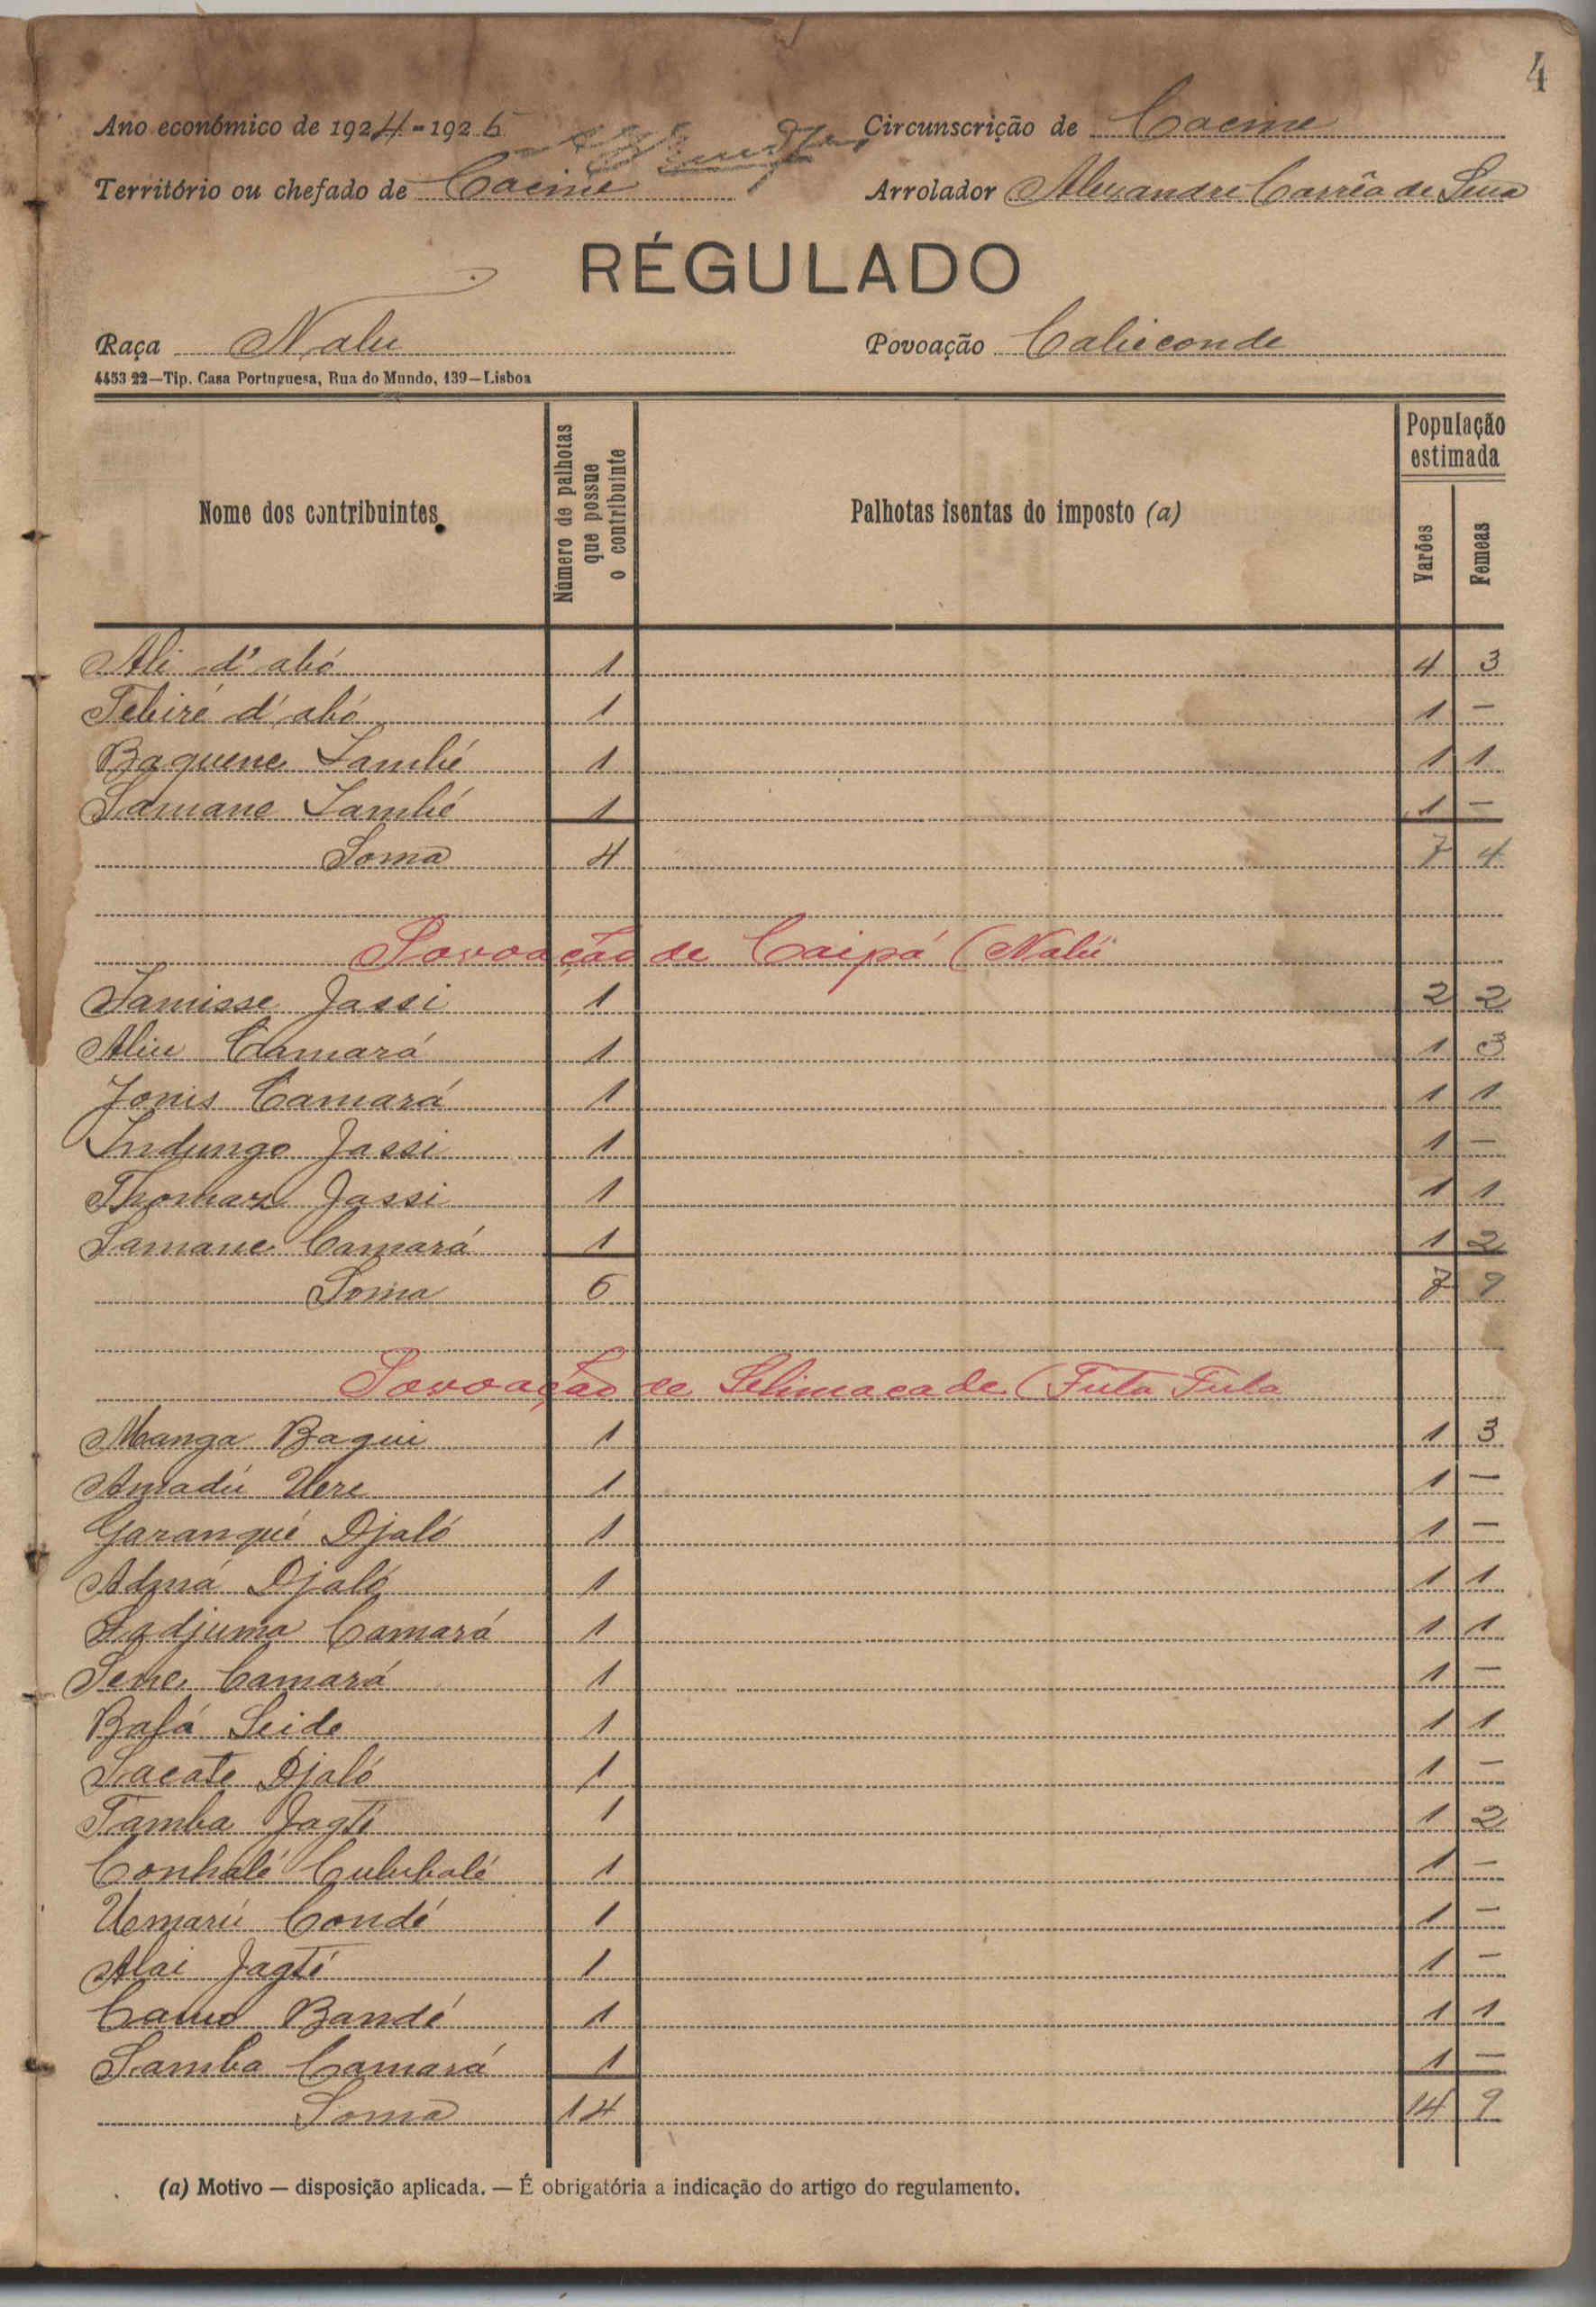 4
Ano económico de 1924-1925 Circunscrição de Cacine
Território ou chefado de Cacine Arrolador Alexandre Corrêa de Sena
RÉGULADO
Raça Nalu Povoação Calieconde
4453 22—Tip. Casa Portuguesa, Rua do Mundo, 139—Lisboa
Nome dos contribuintes Número de palhotas que possue o contribuinte Palhotas isentas do imposto (a) População estimada Varões Femeas
Ali d'abó 1 4 3
Tebiré d'abó 1 1 —
Baquene Sambé 1 1 1
Samane Sambé 1 1 —
Soma 4 7 4
Povoação de Caipá (Nalú
Samisse Jassi 1 2 2
Aliu Camará 1 1 3
Jonis Camará 1 1 1
Indungo Jassi 1 1 —
Thomaz Jassi 1 1 1
Samane Camará 1 1 2
Soma 6 7 9
Povoação de Selimacade (Futa Fula
Manga Baqui 1 1 3
Amadú Uere 1 1 —
Garanqué Djaló 1 1 —
Admá Djaló 1 1 1
Sadjuma Camará 1 1 1
Sene Camará 1 1 —
Bafá Seide 1 1 1
Sacate Djaló 1 1 —
Tamba Jagté 1 1 2
Conhalé Culubalé 1 1 —
Umarú Condé 1 1 —
Alai Jagté 1 1 —
Camo Bandé 1 1 1
Samba Camará 1 1 —
Soma 14 14 9
(a) Motivo — disposição aplicada. — É obrigatória a indicação do artigo do regulamento.